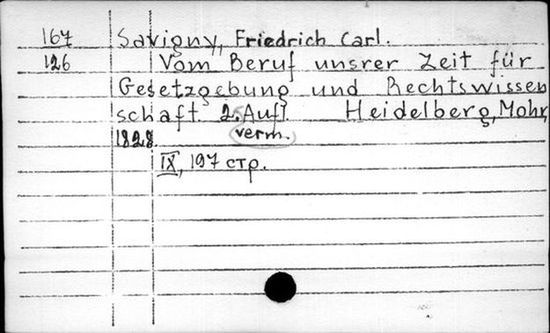 167 Savigny, Friedrich Carl.
126 Vom Beruf unsrer Zeit für
Gesetzgebung und Rechtswissen
schaft 2. Aufl Heidelberg, Mohr,
1828 verm.
IX, 197 стр.